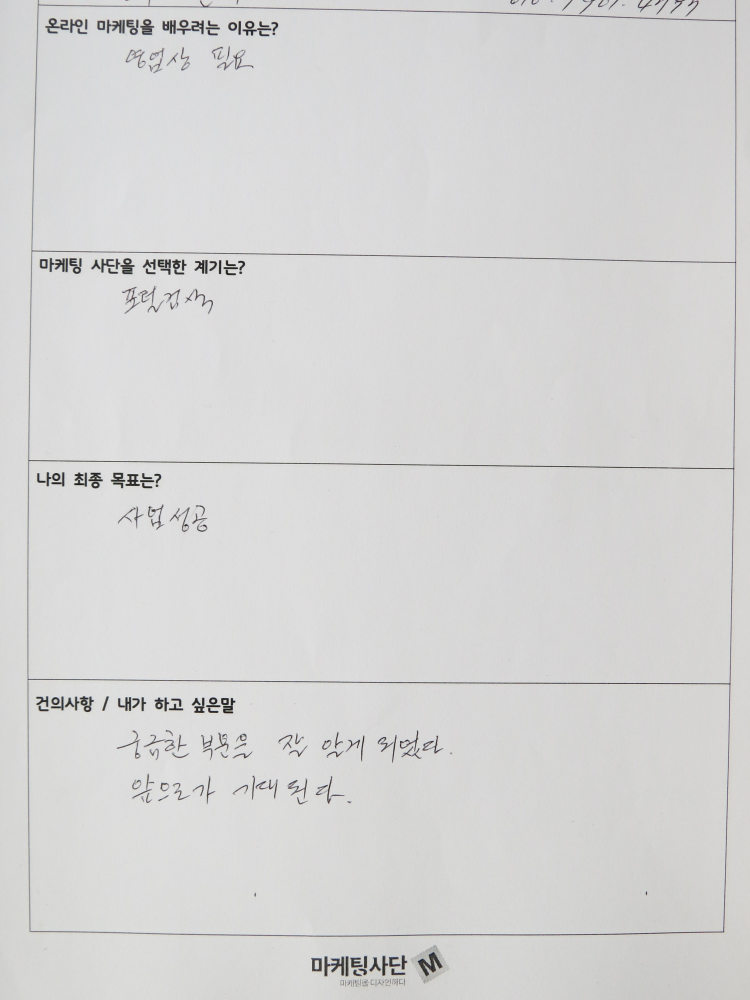 온라인 마케팅을 배우려는 이유는?
영업상 필요
마케팅 사단을 선택한 계기는?
포털검색
나의 최종 목표는?
사업성공
건의사항 / 내가 하고 싶은말
궁금한 부분을 잘 알게 되었다.
앞으로가 기대된다.
마케팅사단 M
마케팅을 디자인하다